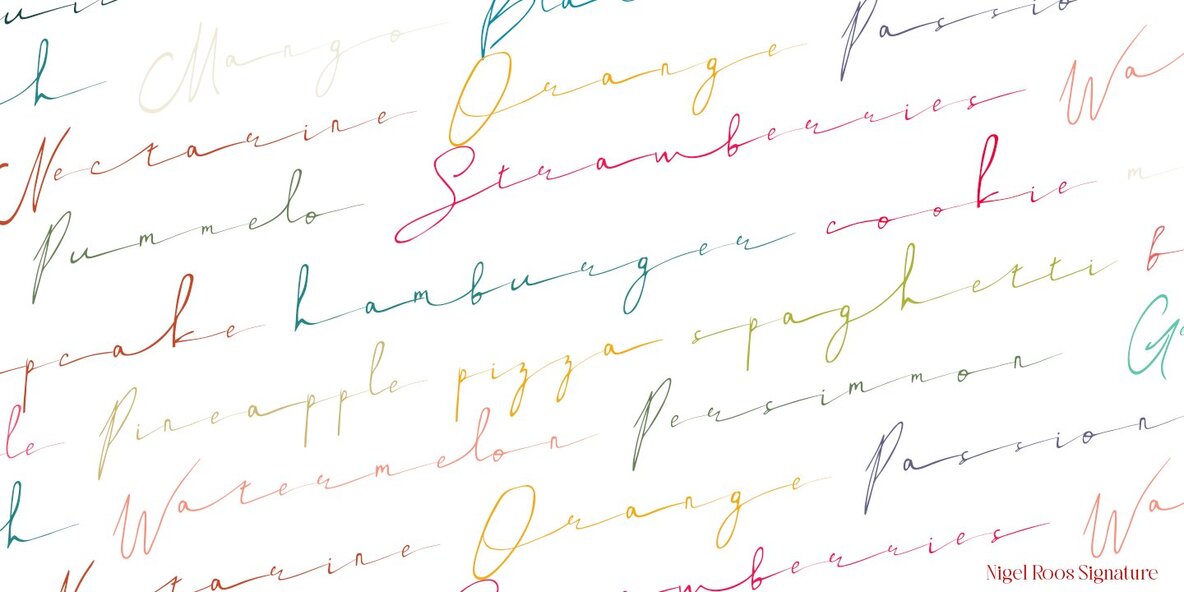 h Mango Bla
Nectarine Orange Passio
Pummelo Strawberries Wa
pcake hamburger cookie m
le Pineapple pizza spaghetti b
h Watermelon Persimmon G
tarine Orange Passion
wberries Wa
Nigel Roos Signature